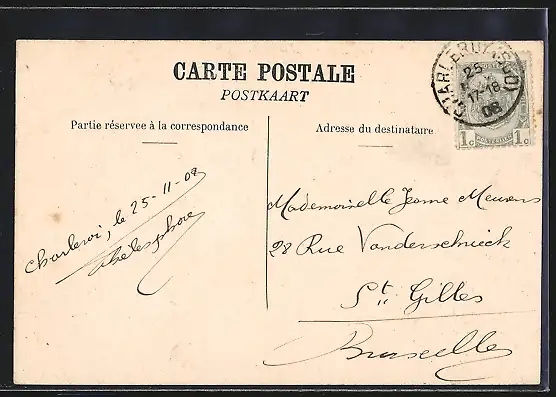 CARTE POSTALE
POSTKAART
Partie réservee à la correspondance
Adresse du destinataire
CHARLEROY (SUD)
25
17-18
08
1c POSTERIJEN 1c
Charleroi, le 25-11-08
Thélesphore
Mademoiselle Jeanne Meurens
28 Rue Vanderschrieck
St. Gilles
Bruxelles